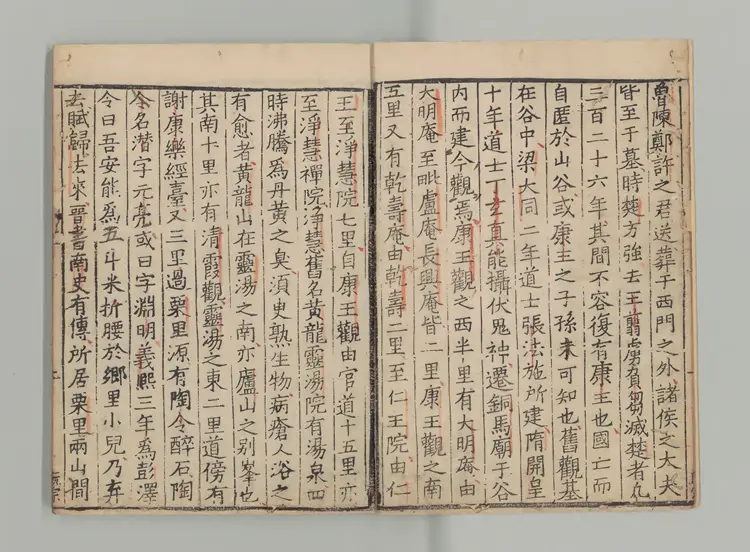 魯陳鄭許之君送葬于西門之外諸侯之大夫
皆至于墓時楚方強去王翦虜負芻滅楚者凡
三百二十六年其間不容復有康王也國亡而
自匿於山谷或康王之子孫未可知也舊觀基
在谷中梁大同二年道士張法施所建隋開皇
十年道士丁玄真能攝伏鬼神遷銅馬廟于谷
內而建今觀焉康王觀之西半里有大明庵由
大明庵至毗盧庵長興庵皆二里康王觀之南
五里又有乾壽庵由乾壽二里至仁王院由仁
王至淨慧院七里自康王觀由官道十五里亦
至淨慧禪院淨慧舊名黃龍靈湯院有湯泉四
時沸騰為丹黃之臭須史熟生物病瘡人浴之
有愈者黃龍山在靈湯之南亦廬山之别峯也
其南十里亦有清霞觀靈湯之東二里道傍有
謝康樂經臺又三里過栗里源有陶令醉石陶
令名潛字元亮或曰字淵明義熙三年為彭澤
令曰吾安能為五斗米折腰於鄉里小兒乃弃
去賦歸去來晉書南史有傳所居栗里兩山間